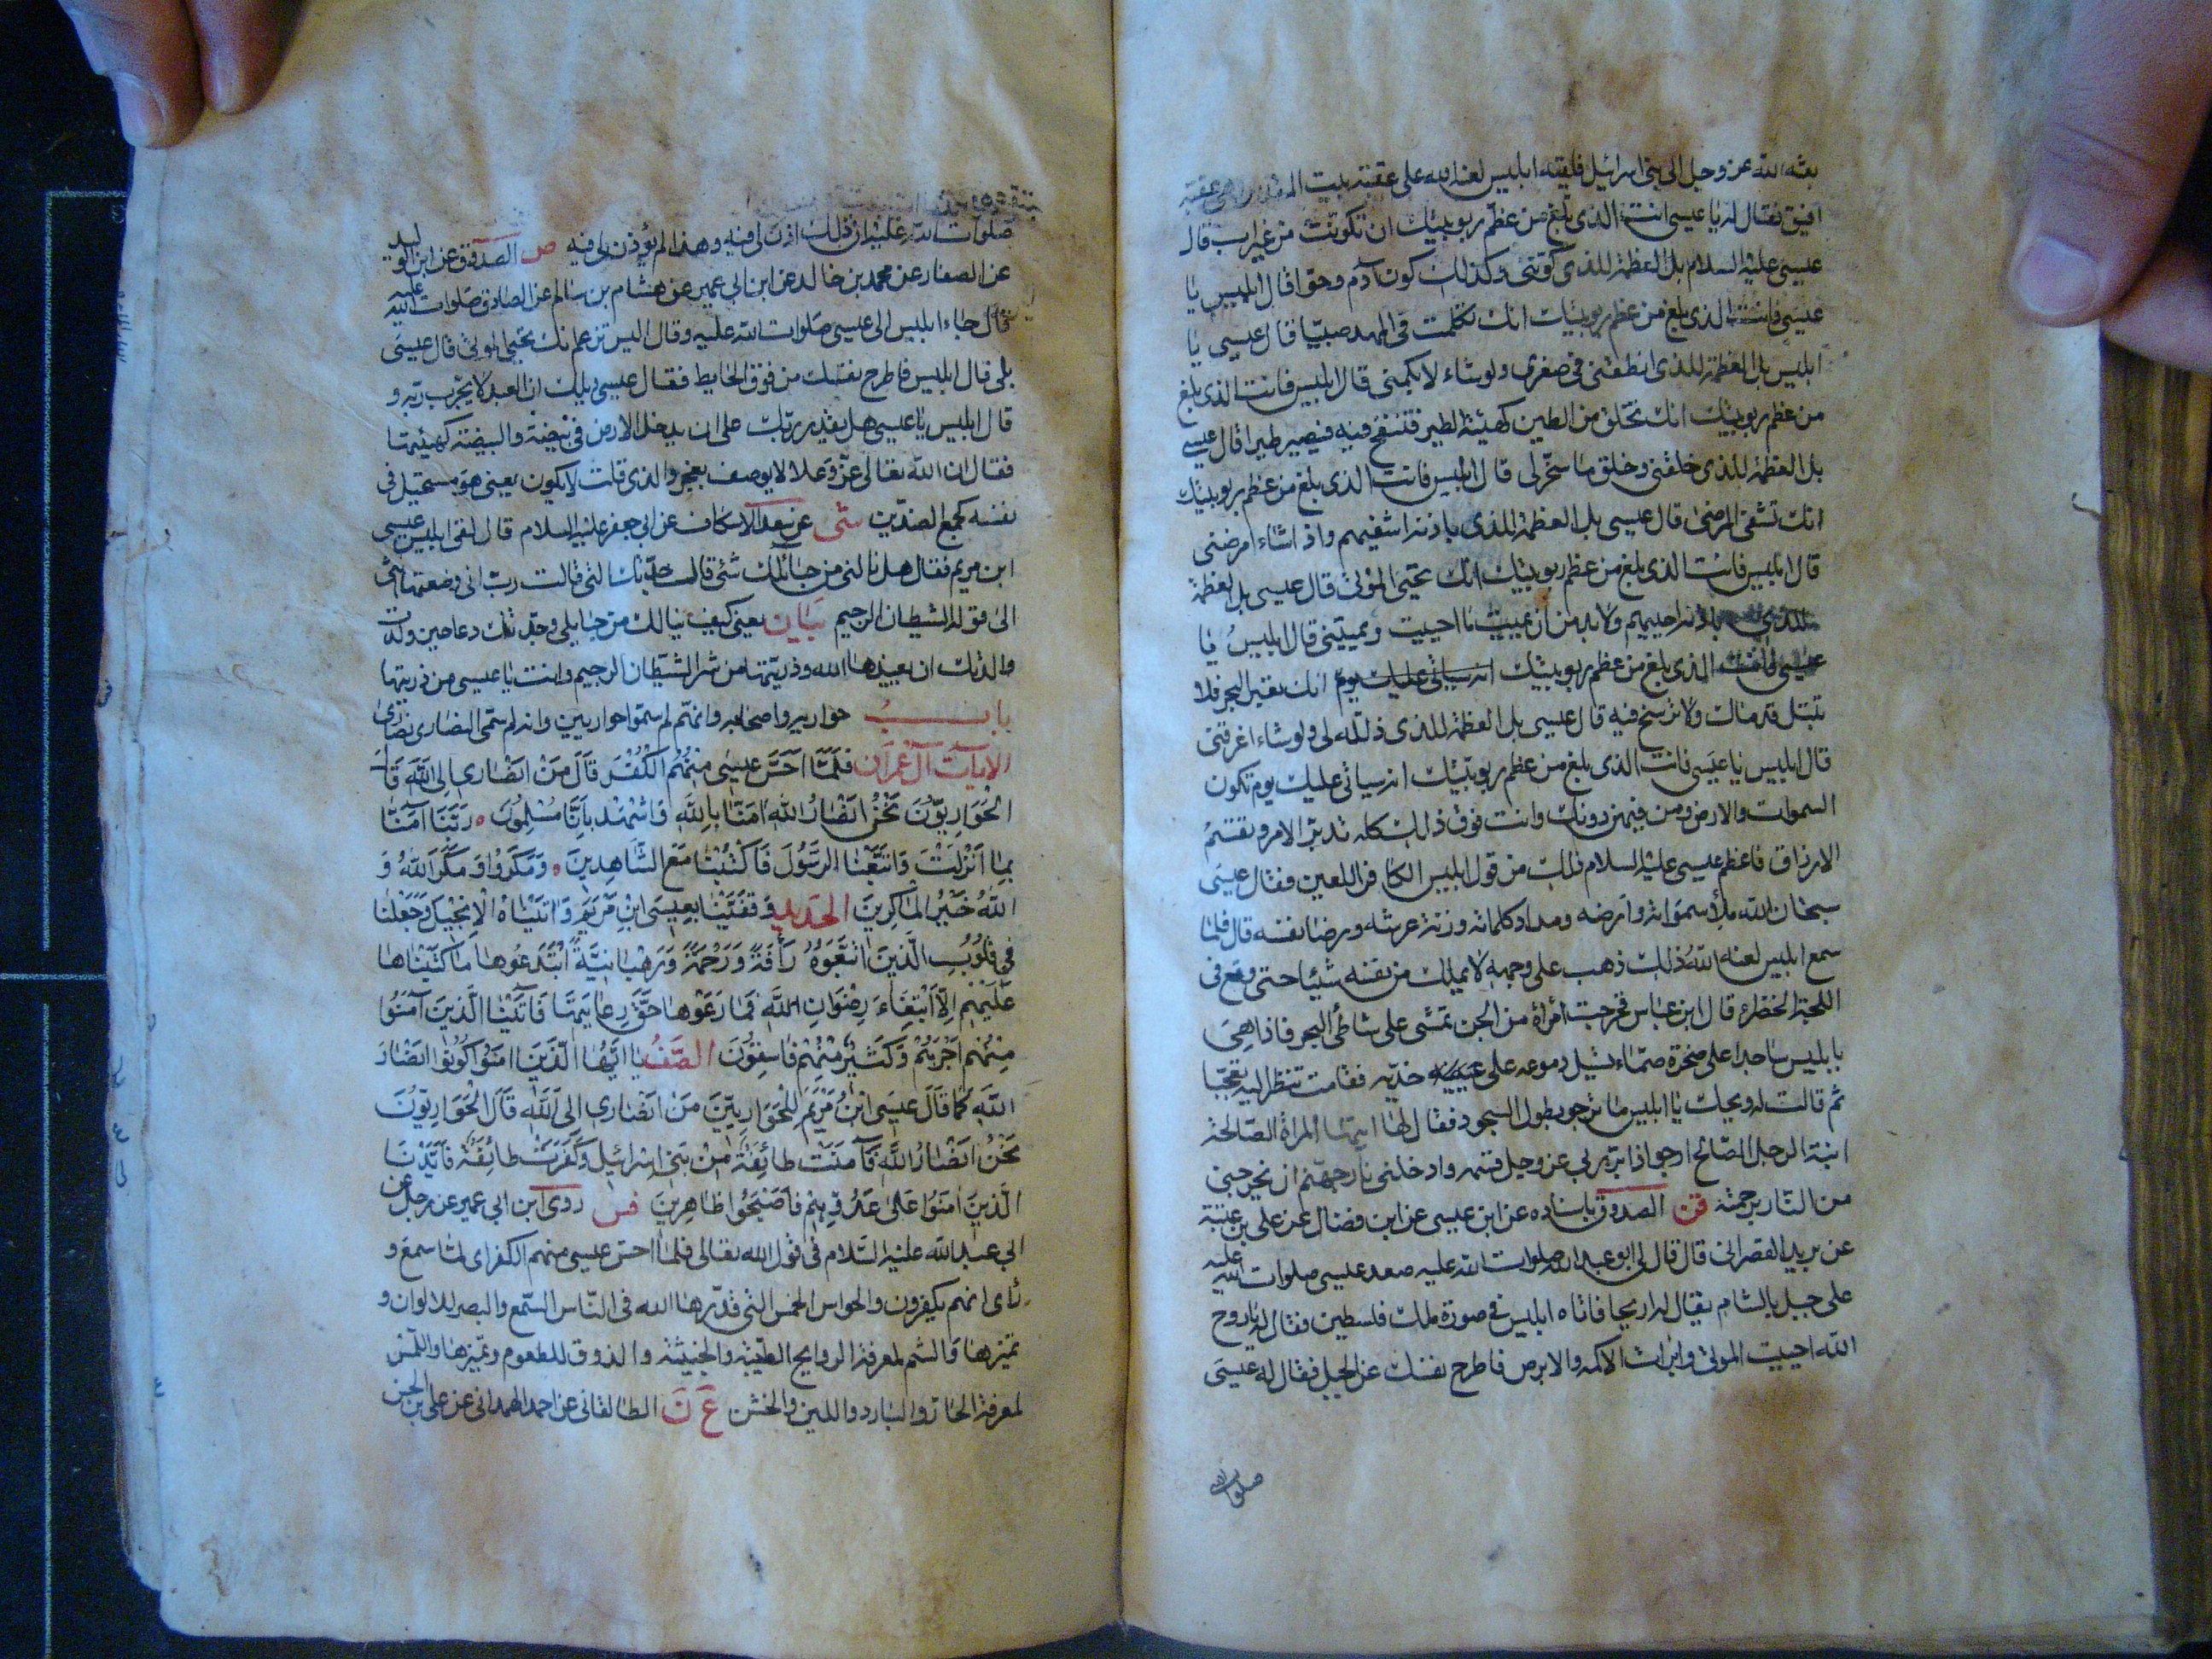 بعثه الله عز وجل الى بنى اسرائيل فلقيه ابليس لعنه الله على عقبة بيت المقدس وهى عقبة
افيق فقال له يا عيسى انت الذى بلغ من عظم ربوبيتك ان تكونت من غير اب قال
عيسى عليه السلام بل العظمة للذى كوننى وكذلك كون آدم وحوا قال ابليس يا
عيسى فانت الذى بلغ من عظم ربوبيتك انك تكلمت فى المهد صبيا قال عيسى يا
ابليس بل العظمة للذى انطقنى فى صغرى ولو شاء لابكمنى قال ابليس فانت الذى بلغ
من عظم ربوبيتك انك تخلق من الطين كهيئة الطير فتنفخ فيه فيصير طيرا قال عيسى
بل العظمة للذى خلقنى وخلق ما سخر لى قال ابليس فانت الذى بلغ من عظم ربوبيتك
انك تشفى المرضى قال عيسى بل العظمة للذى باذنه اشفيهم واذا شاء امرضنى
قال ابليس فانت الذى بلغ من عظم ربوبيتك انك تحيى الموتى قال عيسى بل العظمة
للذى باذنه احييهم ولا بد من ان يميت ما احييت ويميتنى قال ابليس يا
عيسى فانت الذى بلغ من عظم ربوبيتك انه سياتى عليك يوم انك تعبر البحر فلا
تبتل قدماك ولا ترسخ فيه قال عيسى بل العظمة للذى ذلله لى ولو شاء اغرقنى
قال ابليس يا عيسى فانت الذى بلغ من عظم ربوبيتك انه سياتى عليك يوم تكون
السموات والارض ومن فيهن دونك وانت فوق ذلك كله تدبر الامر وتقسم
الارزاق فاعظم عيسى عليه السلام ذلك من قول ابليس الكافر اللعين فقال عيسى
سبحان الله ملأ سمواته وارضه ومداد كلماته وزنة عرشه ورضا نفسه قال فلما
سمع ابليس لعنه الله ذلك ذهب على وجهه لا يملك من نفسه شيئا حتى وقع فى
اللجة الخضراء قال ابن عباس فخرجت امراة من الجن تمشى على شاطئ البحر فاذا هى
بابليس ساجدا على صخرة صماء تسيل دموعه على خديه فقامت تنظر اليه تعجبا
ثم قالت له ويحك يا ابليس ما ترجو بطول السجود فقال لها ايتها المراة الصالحة
ابنة الرجل الصالح ارجو اذا ابر ربى عز وجل قسمه وادخلنى نار جهنم ان يخرجنى
من النار برحمته فن الصدوق باسناده عن ابن عيسى عن ابن فضال عن على بن عقبة
عن بريد القصرانى قال قال لى ابو عبد الله صلوات الله عليه صعد عيسى صلوات الله عليه
على جبل بالشام يقال له اريحا فاتاه ابليس فى صورة ملك فلسطين فقال له يا روح
الله احييت الموتى وابرات الاكمه والابرص فاطرح نفسك عن الجبل فقال له عيسى
صلوات
صلوات الله عليه ان ذلك اذن لى فيه وهذا لم يؤذن لى فيه ص الصدوق عن ابن الوليد
عن الصفار عن محمد بن خالد عن ابن ابى عمير عن هشام بن سالم عن الصادق صلوات الله عليه
قال جاء ابليس الى عيسى صلوات الله عليه وقال اليس تزعم انك تحيى الموتى قال عيسى
بلى قال ابليس فاطرح نفسك من فوق الحايط فقال عيسى ويلك ان العبد لا يجرب ربه و
قال ابليس يا عيسى هل يقدر ربك على ان يدخل الارض فى بيضة والبيضة كهيئتها
فقال ان الله تعالى عز وعلا لا يوصف بعجز والذى قلت لا يكون يعنى هو مستحيل فى
نفسه كجمع الضدين شى عن سعد الاسكاف عن ابى جعفر عليه السلام قال لقى ابليس عيسى
ابن مريم فقال هل نالنى من حبائلك شئ قال جدتك التى قالت رب انى وضعتها انثى
الى قوله الشيطان الرجيم بيان يعنى كيف ينالك من حبايلى وجدتك دعا حين ولدت
والدتك ان يعيذها الله وذريتها من شر الشيطان الرجيم وانت يا عيسى من ذريتها
باب حواريه واصحابه وانهم لم سموا حواريين وانه لم سمى النصارى نصارى
الآيات آل عمران فَلَمَّا اَحَسَّ عيسى مِنْهُمُ الْكُفْرَ قالَ مَنْ اَنْصارى اِلَى اللهِ قالَ
الْحَوارِيُّونَ نَحْنُ اَنْصارُ اللهِ امَنّا بِاللهِ وَاشْهَدْ بِاَنّا مُسْلِمُونَ ٥ رَبَّنا آمَنّا
بِما اَنْزَلْتَ وَاتَّبَعْنَا الرَّسُولَ فَاكْتُبْنا مَعَ الشّاهِدينَ ٥ وَمَكَرُوا وَمَكَرَ اللهُ وَ
اللهُ خَيْرُ الْماكِرينَ الحديد وَقَفَّيْنا بِعيسَى ابْنِ مَرْيَمَ وَآتَيْناهُ الْاِنْجيلَ وَجَعَلْنا
فى قُلُوبِ الَّذينَ اتَّبَعُوهُ رَأْفَةً وَرَحْمَةً وَرَهْبانِيَّةً ابْتَدَعُوها ما كَتَبْناها
عَلَيْهِمْ اِلَّا ابْتِغاءَ رِضْوانِ اللهِ فَما رَعَوْها حَقَّ رِعايَتِها فَآتَيْنَا الَّذينَ آمَنُوا
مِنْهُمْ اَجْرَهُمْ وَكَثيرٌ مِنْهُمْ فاسِقُونَ الصف يا اَيُّهَا الَّذينَ امَنُوا كُونُوا اَنْصارَ
اللهِ كَما قالَ عيسَى ابْنُ مَرْيَمَ لِلْحَوارِيّينَ مَنْ اَنْصارى اِلَى اللهِ قالَ الْحَوارِيُّونَ
نَحْنُ اَنْصارُ اللهِ فَآمَنَتْ طائِفَةٌ مِنْ بَنى اِسْرائيلَ وَكَفَرَتْ طائِفَةٌ فَاَيَّدْنَا
الَّذينَ امَنُوا عَلى عَدُوِّهِمْ فَاَصْبَحُوا ظاهِرينَ فس روى ابن ابى عمير عن رجل عن
ابى عبد الله عليه السلام فى قول الله تعالى فلما احس عيسى منهم الكفر اى لما سمع و
راى انهم يكفرون والحواس الخمس التى قدرها الله فى الناس السمع والبصر للالوان و
تميزها والشم لمعرفة الروايح الطيبة والخبيثة والذوق للطعوم وتميزها واللمس
لمعرفة الحار والبارد واللين والخشن ع ن الطالقانى عن احمد الهمدانى عن على بن الحسن